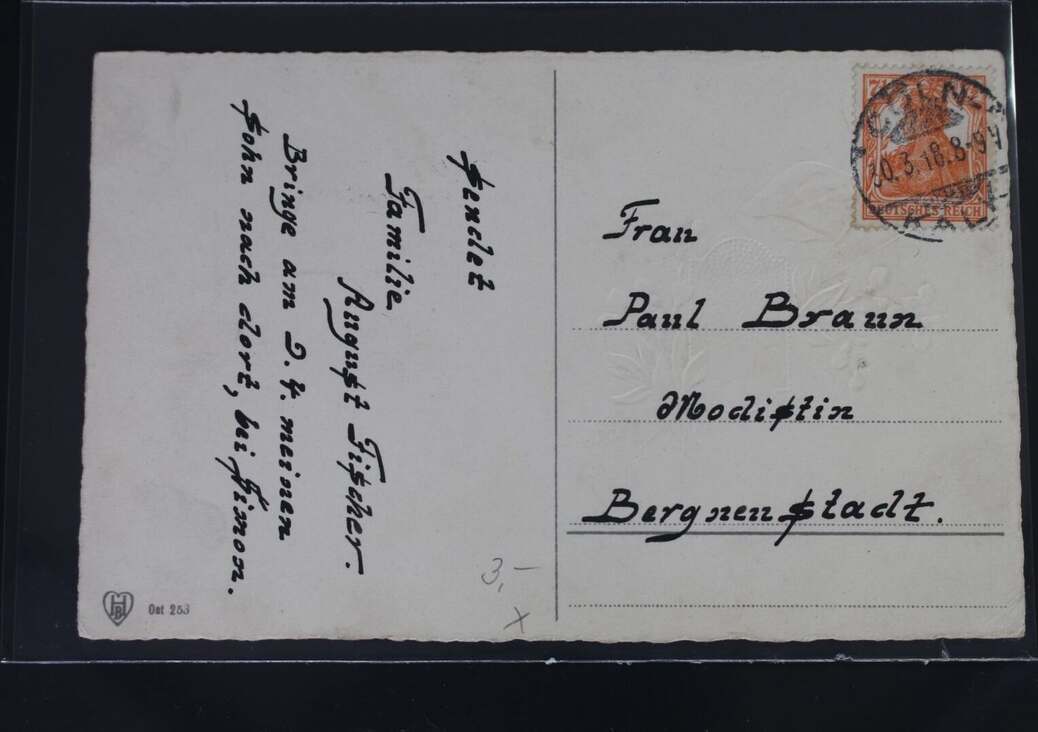 sendet
Familie
August Fischer.
Bringe am 2. 4. meinen
Sohn nach dort, bei Simon.
Frau
Paul Braun
Modistin
Bergneustadt.
30.3.18.8-9V
DEUTSCHES REICH
HB
Ost 253
3,-
x